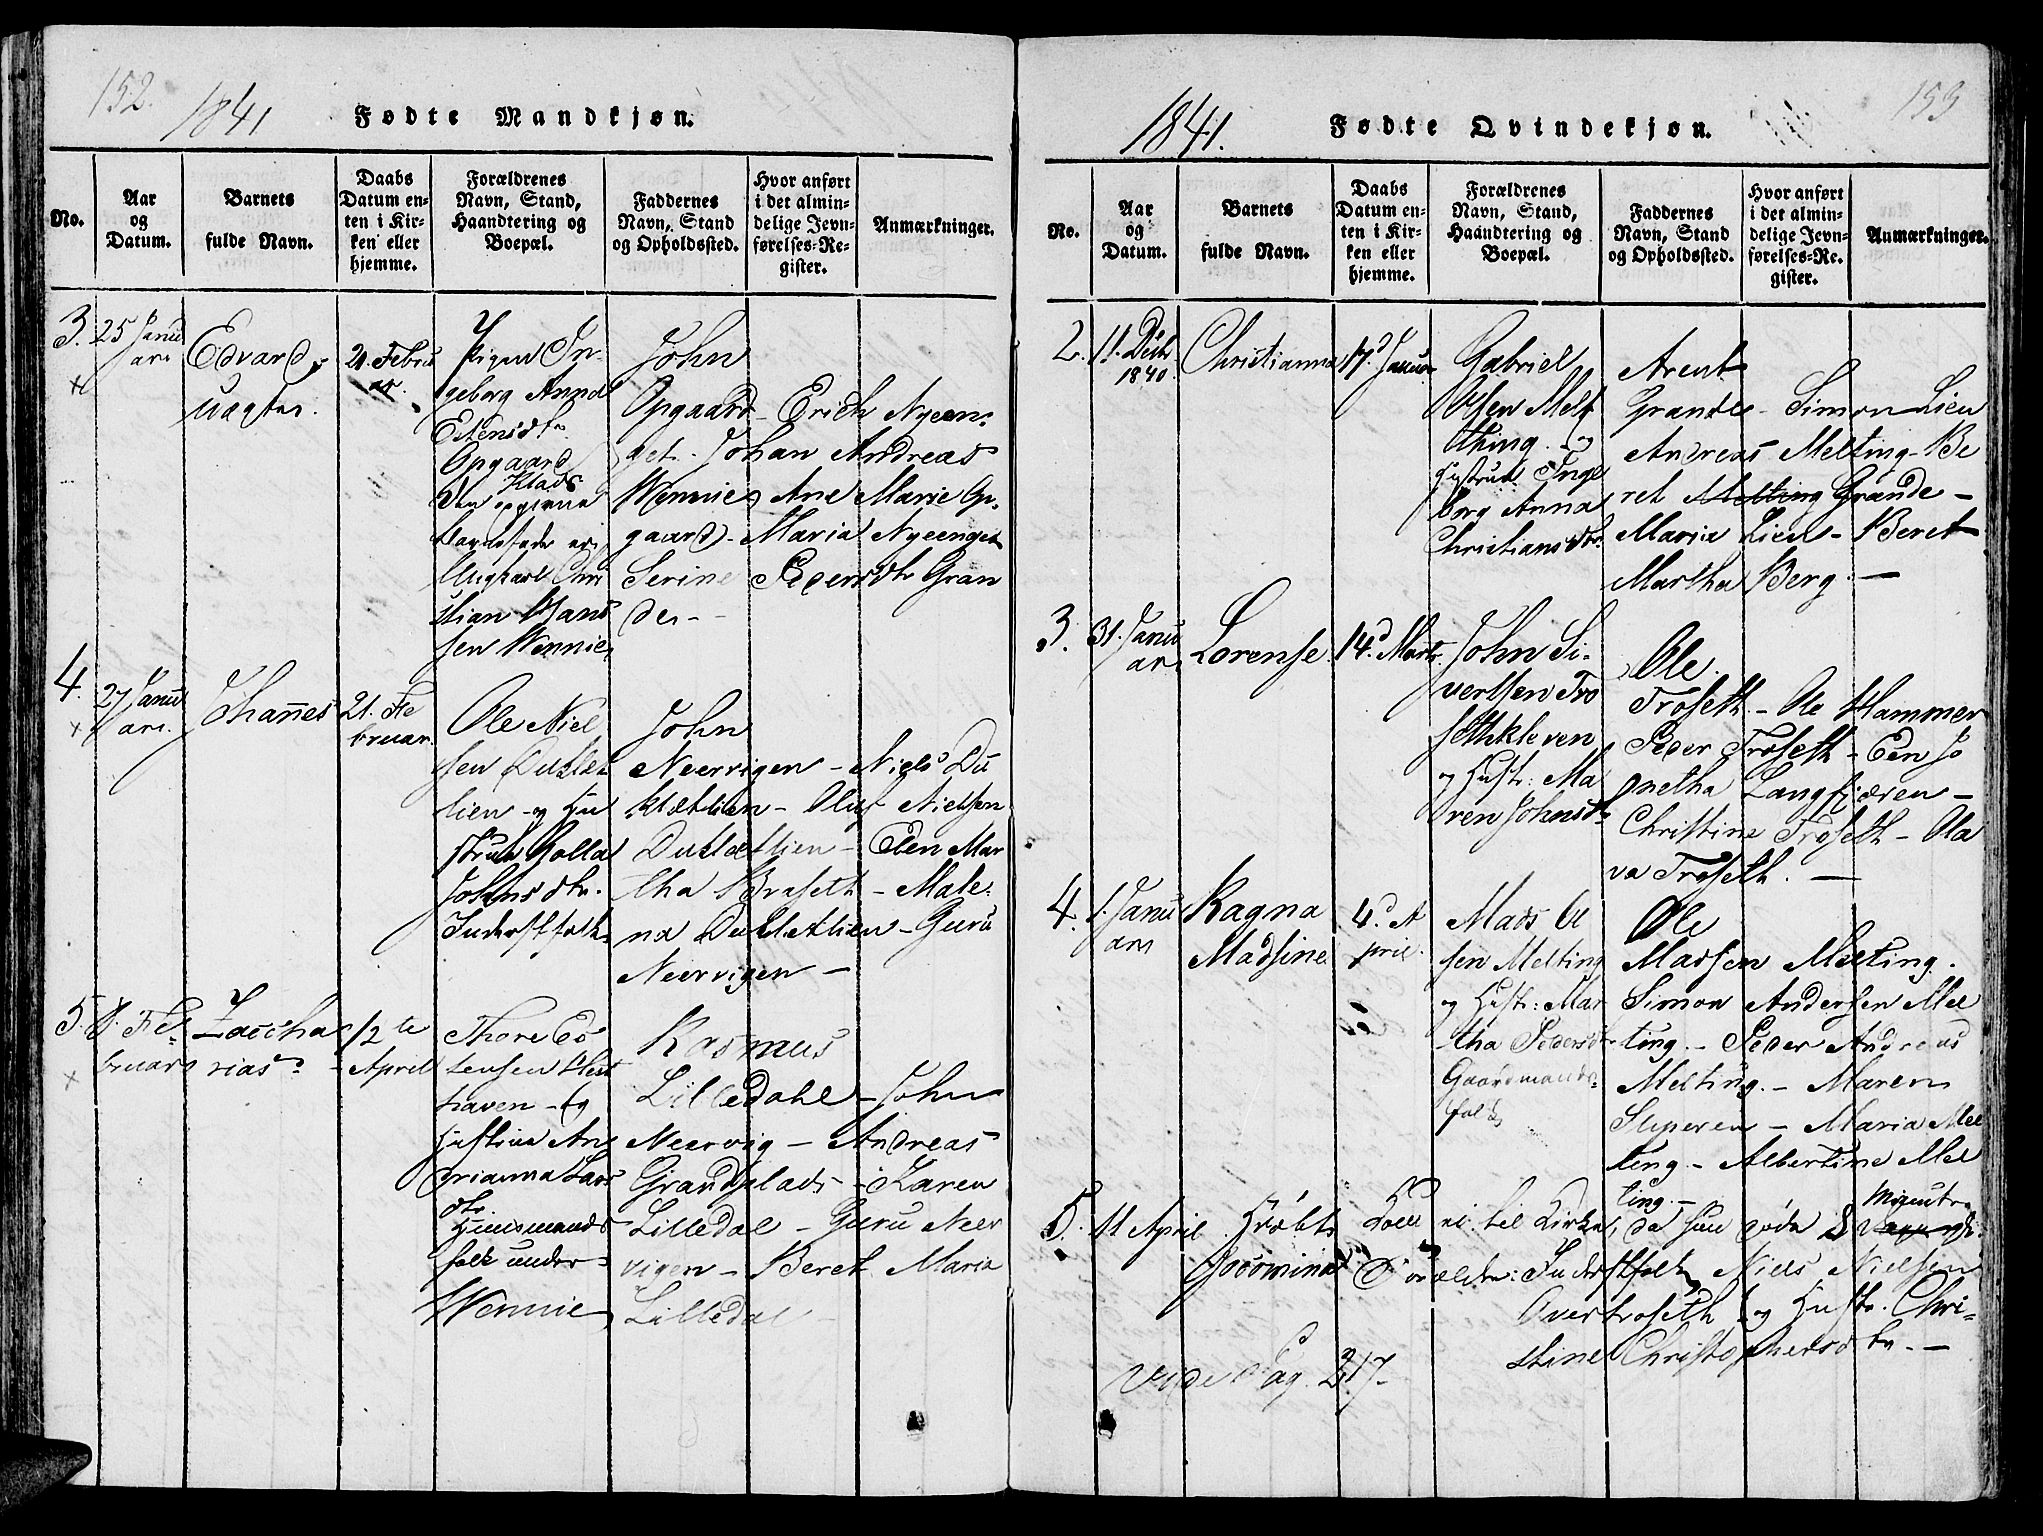 152.
1841
Fødte Mandkjøn.
No.
Aar
og
Datum.
Barnets
fulde Navn.
Daabs
Datum en-
ten i Kir-
ken eller
hjemme.
Forældrenes
Navn, Stand,
Haandtering og
Boepæl.
Faddernes
Navn, Stand
og Opholdssted.
Hvor anført
i det almin-
delige Jevn-
førelses-Re-
gister.
Anmærkninger.
3.
25 Janu
ari
Edvard
Uagtus.
21. Febru
ar.
Pigen In-
geborg Anna
Estensdtr
Opgaard
Klads
den opgivne
Barnefader er
Ungkarl Chri
stian Hans
sen Wennie
John
Opgaard - Erich Nyeen-
get - Johan Andreas
Wennies Ane Marie Op-
gaard - Maria Nyeenget
Serine Pedersdtr Gran
der -
4.
27 Janu
ari.
Johannes
21. Fe
bruar.
Ole Niel
sen Duklæt
lien - og Hu
strue Golla
Johnsdtr.
Inderstfolk
John
Neervigen - Niels Du
klætlien - Oluf Nielsen
Duklætlien - Elen Mar
tha Braseth - Male-
na Duklætlien - Guru
Neervigen -
5.
8. Fe-
bruar
Zaccha
rias
12te
April
Thore Es
tensen Hest
haven - og
Hustrue An
drianna Lars
dtr.
Huusmands
folk under
Wennie
Rasmus
Lilledahl - John
Neervig - Andreas
Grandplads - Karen
Lilledal - Guru Neer
vigen - Beret Maria
Lilledal -
153
1841.
Fødte Qvindekjøn.
No.
Aar
og
Datum.
Barnets
fulde Navn.
Daabs
Datum en-
ten i Kir-
ken eller
hjemme.
Forældrenes
Navn, Stand,
Haandtering og
Boepæl.
Faddernes
Navn, Stand
og Opholdssted.
Hvor anført
i det almin-
delige Jevn-
førelses-Re-
gister.
Anmærkninger.
2.
11. Decbr
1840.
Christianna
17d Januar
Gabriel
Olsen Melt
thing - og
Hustrue Inge
borg Anna
Christiansdtr
Arent
Grande - Simon Lien
Andreas Melting - Be
ret Melting Grande -
Maria Lien - Beret
Martha Berg. -
3.
31. Janu
ari
Lorense
14d Marts
John Si-
vertsen Tro
sethkleven
og Hustr: Ma
ren Johnsdtr
Ole
Troseth - Ole Hammer
Peder Troseth - Elen Jo
netha Langfjæren -
Christine Troseth - Ola
va Troseth. -
4.
1. Janu
ari
Ragna
Madsine
4d A
pril.
Mads Ol
sen Melting
og Hustr: Mar
tha Pedersdtr
Gaardmands-
folk
Ole
Madsen Melting.
Simon Andersen Mel
ting. - Peder Andreas
Melting. - Maren
Stuperen - Maria Mel
ting - Albertine Mel
ting. -
5.
11 April
Gjørmina
ei til Kirke, da hun døde 8
Forældre: Inderstfolk Niels Nielsen
Overtroseth og Hustr. Chri-
stine Christophersdtr. -
Vide Pag. 217-